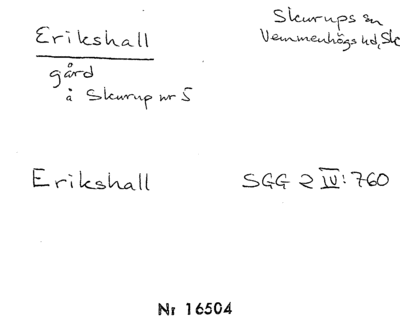 Erikshall
Skurups sn
Vemmenhögs hd, Sk
gård
å Skurup nr 5
Erikshall
SGG 2 IV: 760
Nr 16504